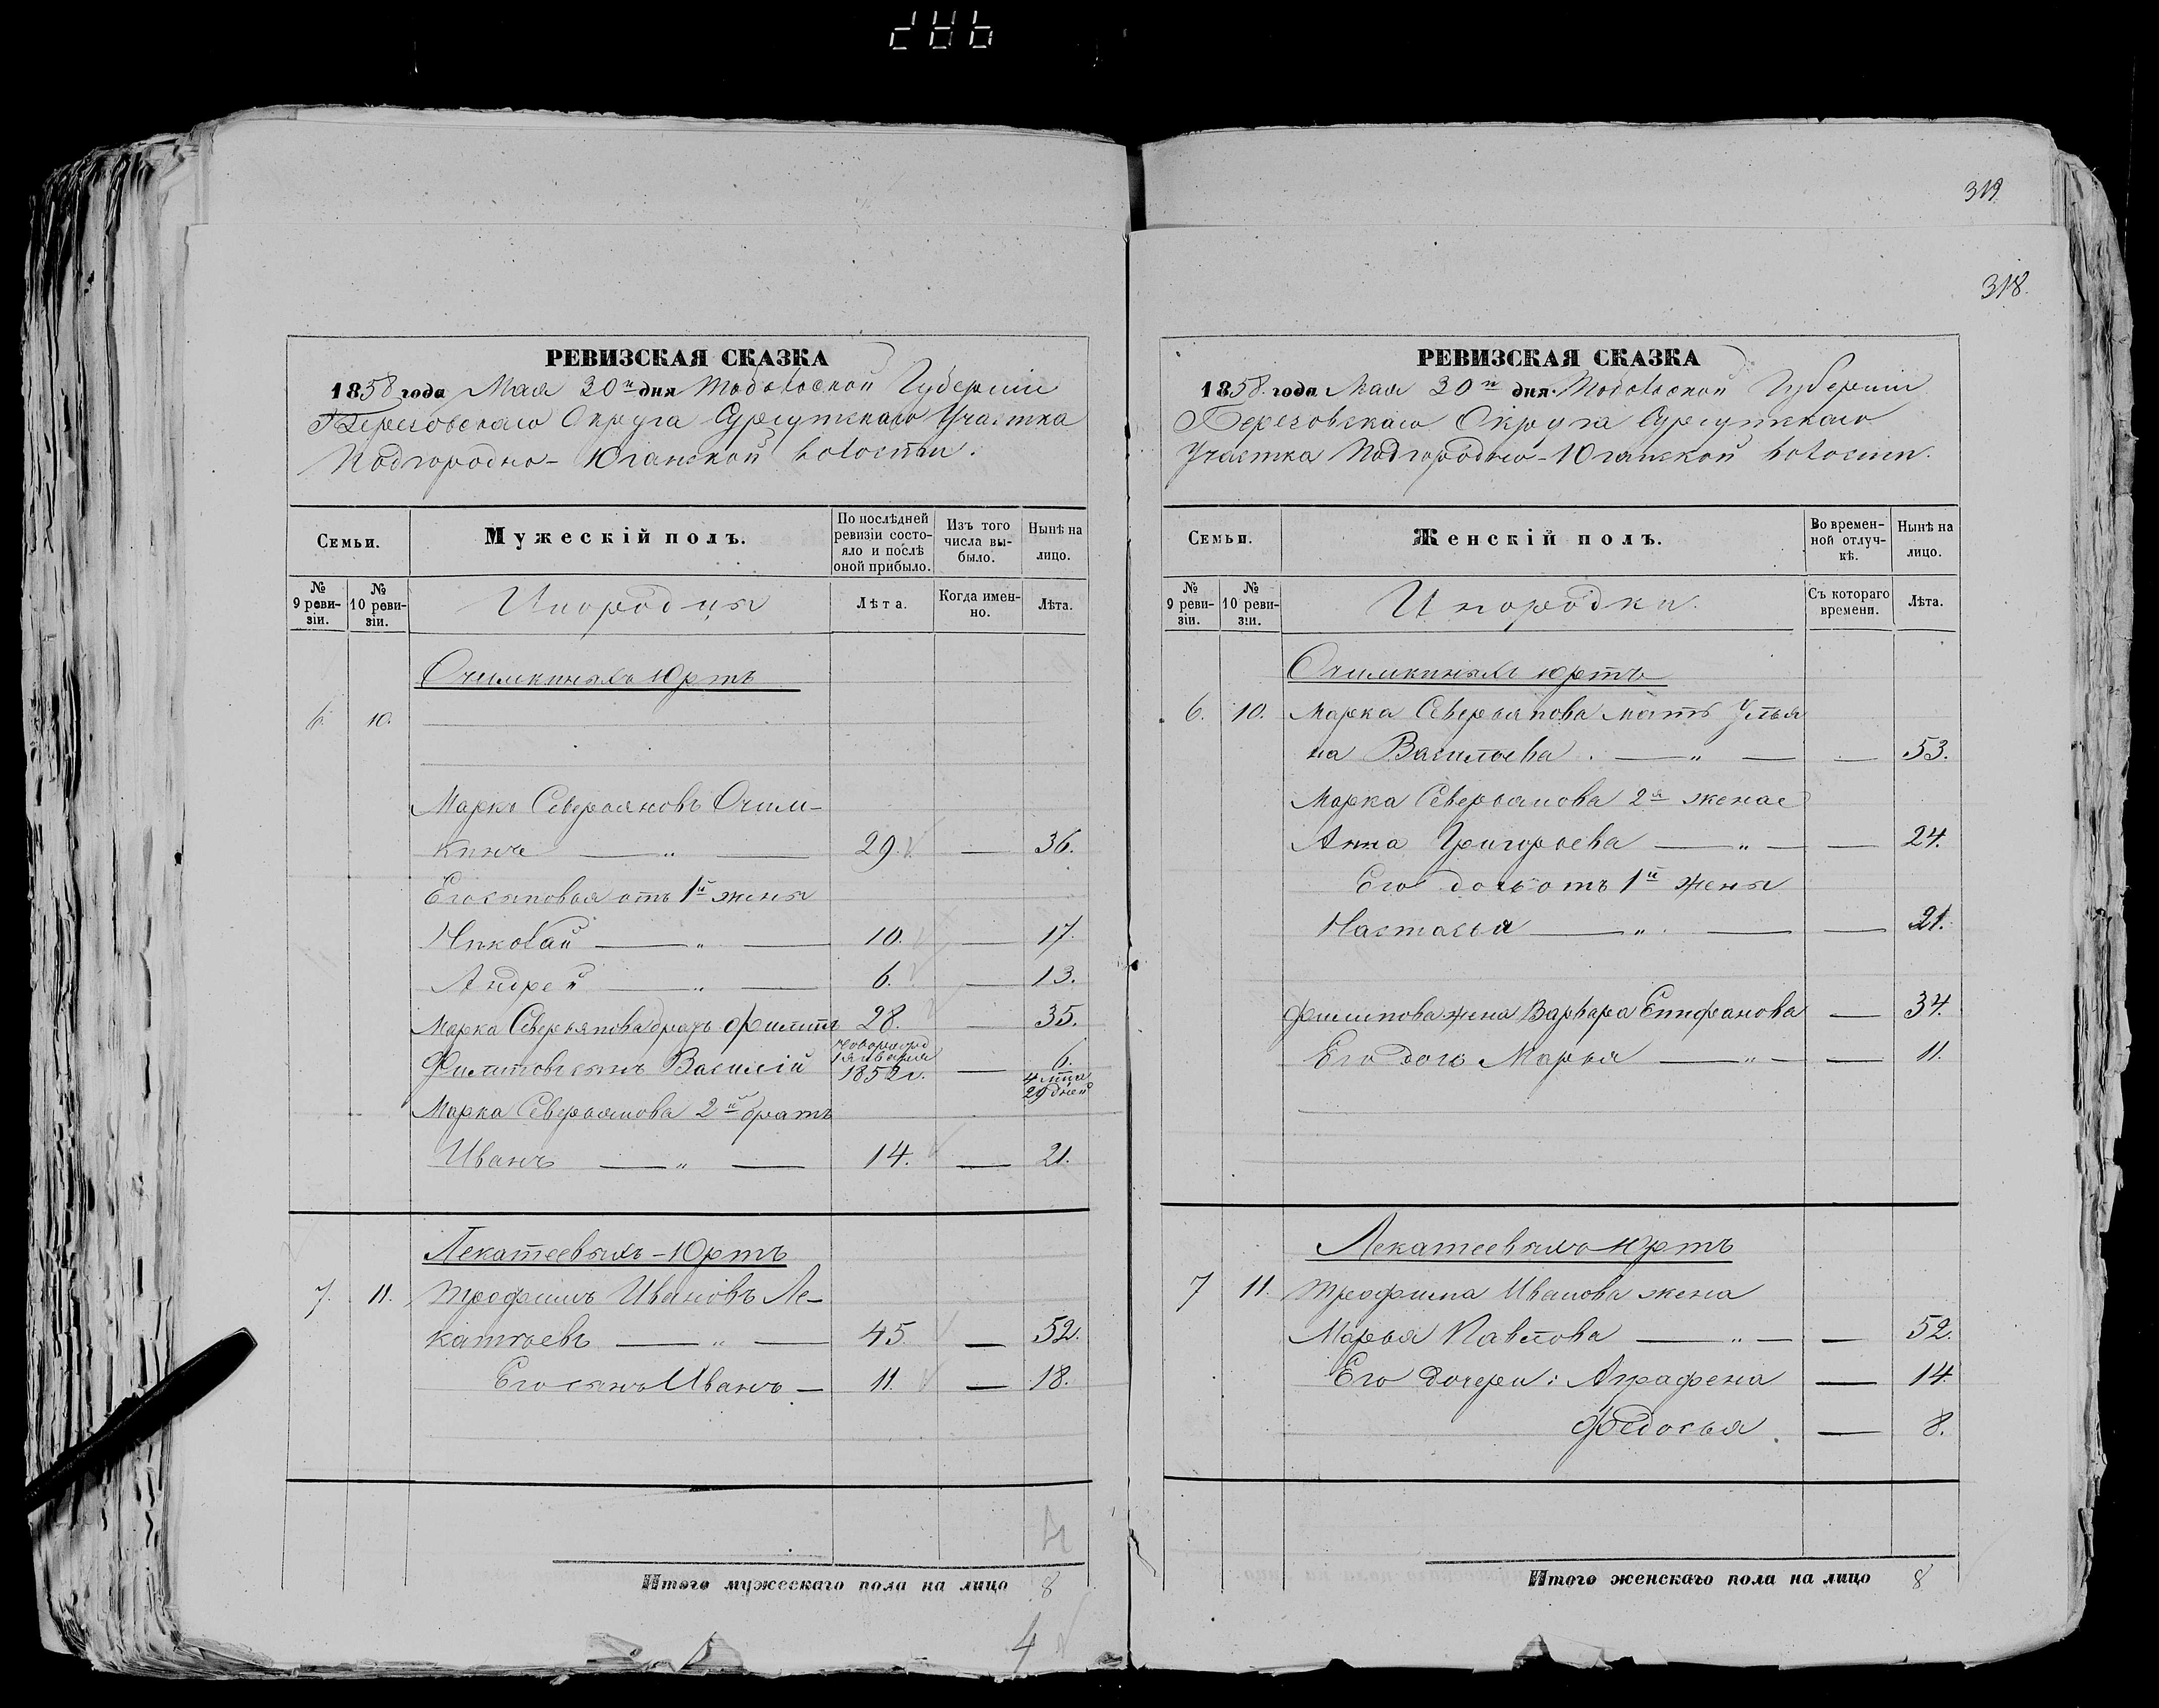 319
318.
РЕВИЗСКАЯ СКАЗКА
1858 года Мая 30го дня Тобольской Губернии
Березовскаго Округа Сургутскаго Участка
Подгородно-Юганской волости.
Семьи.
Мужескій полъ.
По послѣдней ревизіи состояло и послѣ оной прибыло.
Изъ того числа выбыло.
Нынѣ на лицо.
№ 9 ревизіи.
№ 10 ревизіи.
Инородцы
Лѣта.
Когда именно.
Лѣта.
Очимкиныхъ Юртъ
6 10.
Марко Северьяновъ Очим-
кинъ — " — 29. — 36.
Его сыновья отъ 1й жены
Николай — " — 10. — 17.
Андрей — " — 6. — 13.
Марка Северьянова братъ Филиппъ 28. — 35.
Филиповъ сынъ Василій новорожд 1 января 1852 г. — 6. 4 мца 29 дней
Марка Северьянова 2й братъ
Иванъ — " — 14. — 21.
Лекатеевыхъ-Юртъ
7. 11. Трофимъ Ивановъ Ле-
катъевъ — " — 45. — 52.
Его сынъ Иванъ — 11. — 18.
Итого мужескаго пола на лицо 8
4
РЕВИЗСКАЯ СКАЗКА
1858 года Мая 30го дня Тобольской Губерніи
Березовскаго Округа Сургутскаго
Участка Подгородно-Юганской волости.
Семьи.
Женскій полъ.
Во временной отлучкѣ.
Нынѣ на лицо.
№ 9 ревизіи.
№ 10 ревизіи.
Инородки.
Съ котораго времени.
Лѣта.
Очимкиныхъ юртъ
6. 10. Марка Северьянова мать Улья
на Васильева . — " — — 53.
Марка Северьянова 2я жена
Анна Григорьева — " — — 24.
Его дочь отъ 1й жены
Настасья — " — — 21.
Филипова жена Варвара Епифанова — 34.
Его дочь Марья — " — — 11.
Лекатеевыхъ юртъ
7 11. Трофима Иванова жена
Марья Павлова — " — — 52.
Его дочери: Аграфена — 14.
Федосья — 8.
Итого женскаго пола на лицо 8